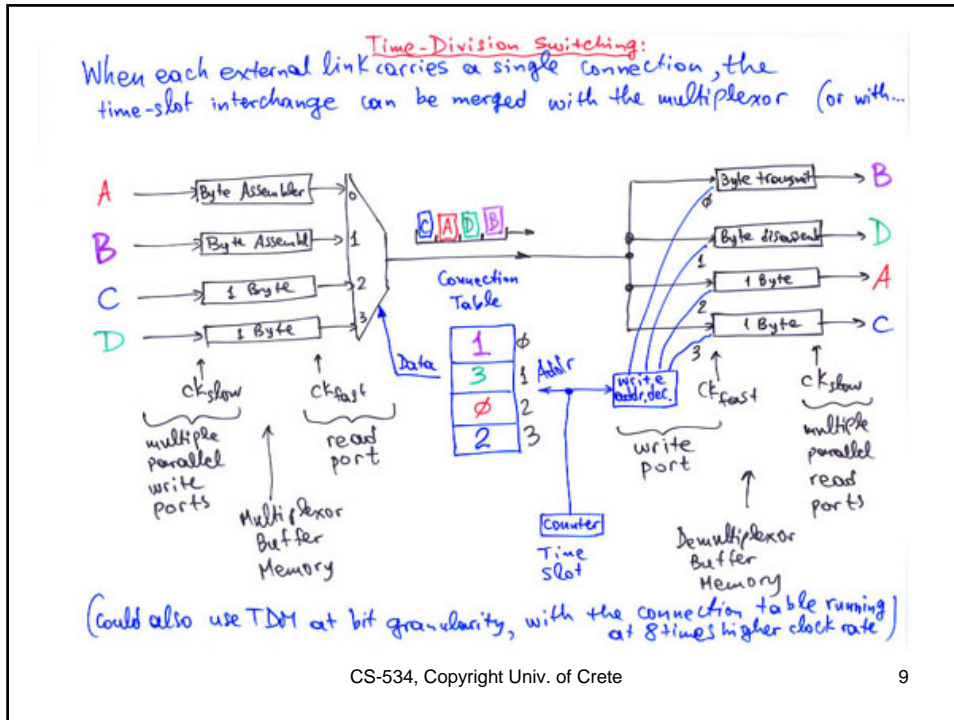 Time-Division Switching:
When each external link carries a single connection, the
time-slot interchange can be merged with the multiplexor (or with...
A
Byte Assembler
0
B
Byte Assembl
1
C
1 Byte
2
D
1 Byte
3
C A D B
ck slow
ck fast
multiple
parallel
write
ports
read
port
Multiplexor
Buffer
Memory
Connection
Table
Data
1 0
3 1
0 2
2 3
Addr
Counter
Time
Slot
write
addr. dec.
Byte transmit
0
B
Byte disassemb
1
D
1 Byte
2
A
1 Byte
3
C
write
port
ck fast
ck slow
multiple
parallel
read
ports
Demultiplexor
Buffer
Memory
(Could also use TDM at bit granularity, with the connection table running
at 8 times higher clock rate)
CS-534, Copyright Univ. of Crete
9